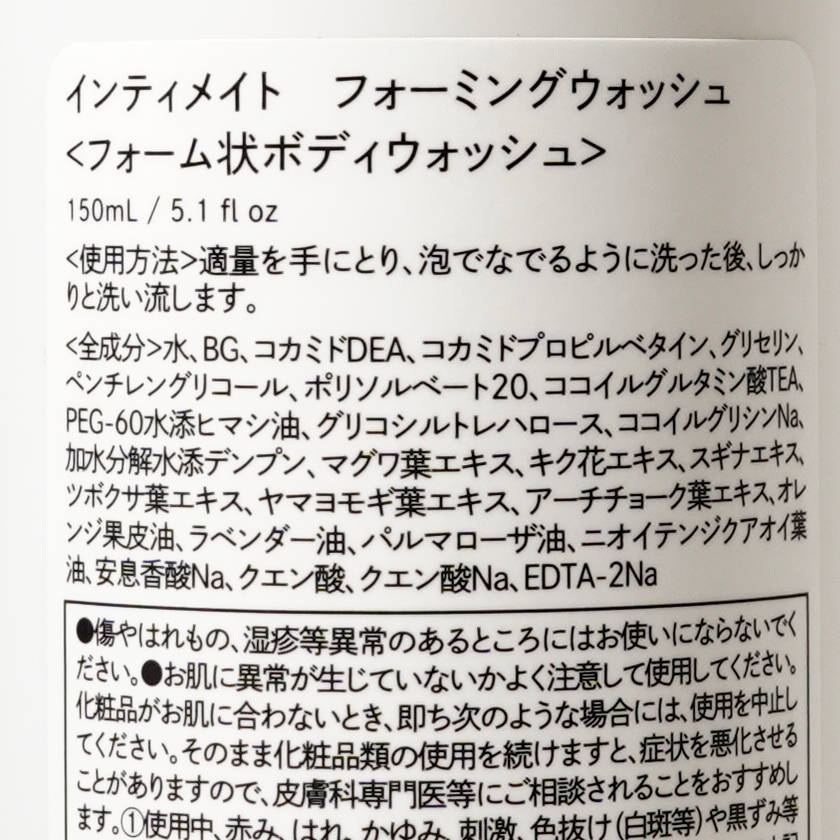 インティメイト　フォーミングウォッシュ
<フォーム状ボディウォッシュ>
150mL / 5.1 fl oz
<使用方法>適量を手にとり、泡でなでるように洗った後、しっか
りと洗い流します。
<全成分>水、BG、コカミドDEA、コカミドプロピルベタイン、グリセリン、
ペンチレングリコール、ポリソルベート20、ココイルグルタミン酸TEA、
PEG-60水添ヒマシ油、グリコシルトレハロース、ココイルグリシンNa、
加水分解水添デンプン、マグワ葉エキス、キク花エキス、スギナエキス、
ツボクサ葉エキス、ヤマヨモギ葉エキス、アーチチョーク葉エキス、オレ
ンジ果皮油、ラベンダー油、パルマローザ油、ニオイテンジクアオイ葉
油、安息香酸Na、クエン酸、クエン酸Na、EDTA-2Na
●傷やはれもの、湿疹等異常のあるところにはお使いにならないでく
ださい。●お肌に異常が生じていないかよく注意して使用してください。
化粧品がお肌に合わないとき、即ち次のような場合には、使用を中止し
てください。そのまま化粧品類の使用を続けますと、症状を悪化させる
ことがありますので、皮膚科専門医等にご相談されることをおすすめし
ます。①使用中、赤み、はれ、かゆみ、刺激、色抜け(白斑等)や黒ずみ等